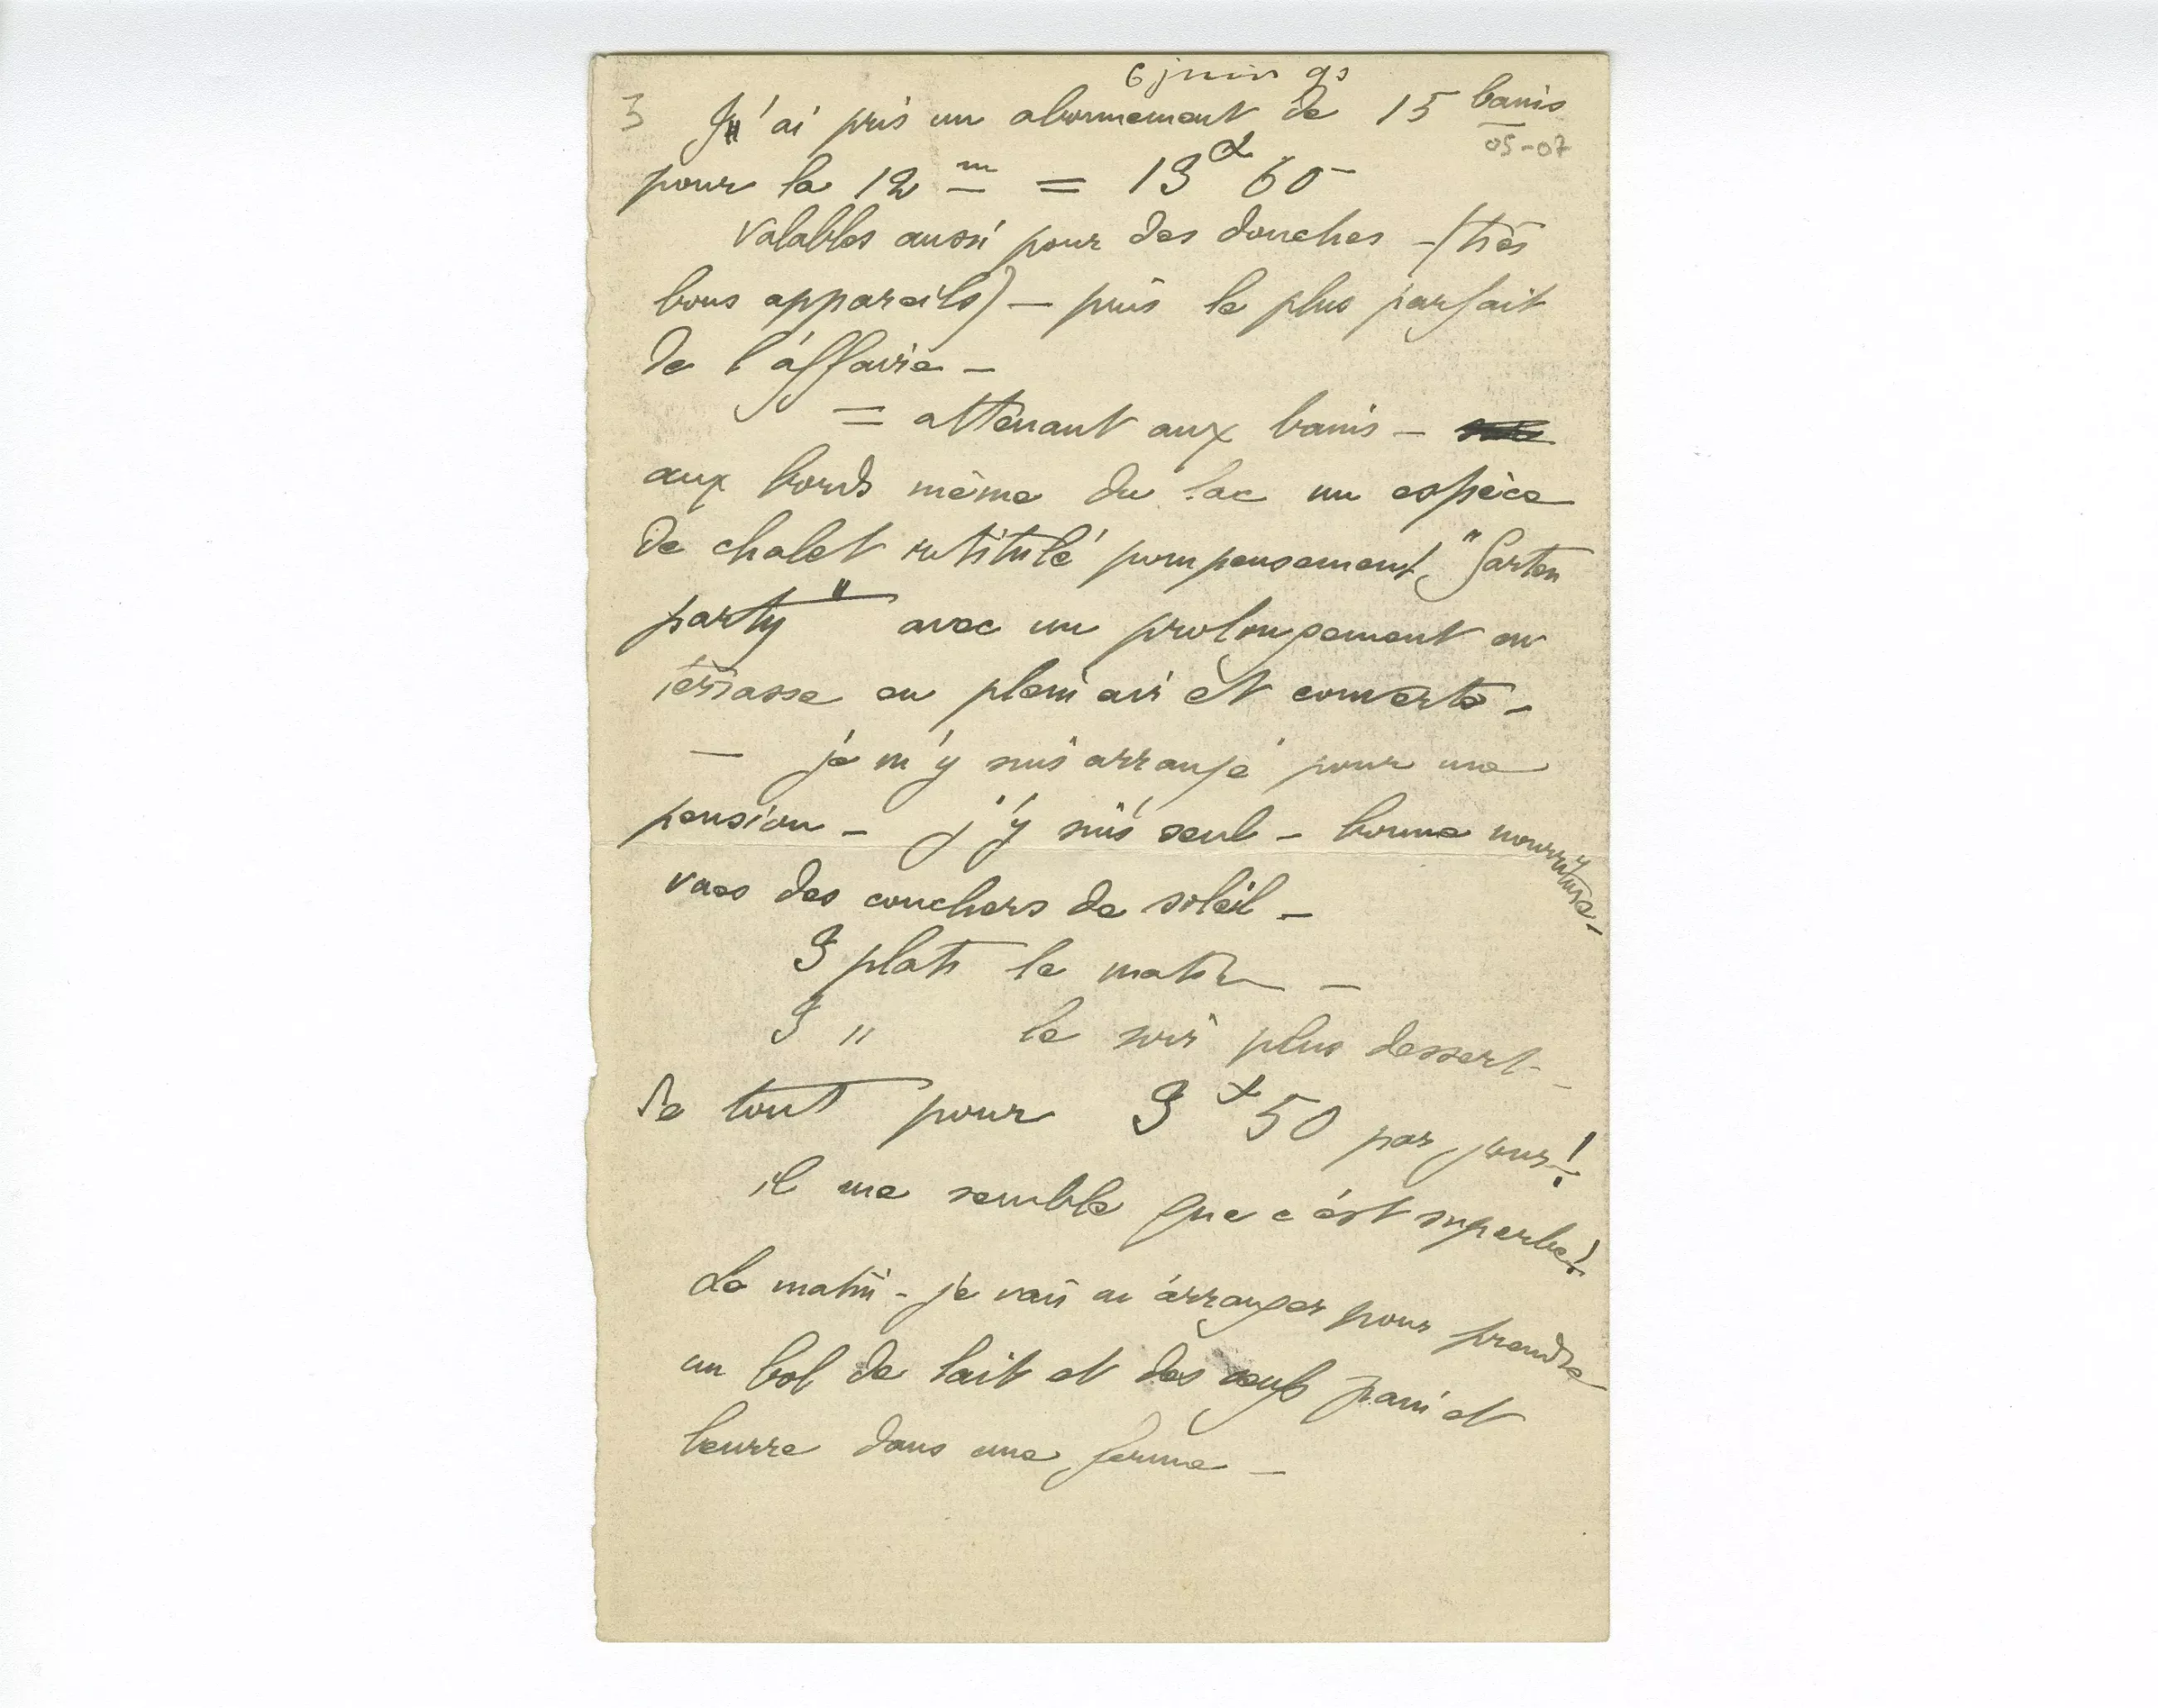 6 juin 90
3 J'ai pris un abonnement de 15 bains
05-07
pour la 12 m = 13 f 60
valables aussi pour des douches – (très
bons appareils) – puis le plus parfait
de l'affaire –
= attenant aux bains –
aux bords même du lac un espèce
de chalet intitulé pompeusement, "Garten
party" avec un prolongement en
terrasse en plein air et couverte –
– je m'y suis arrangé pour une
pension – j'y suis seul – bonne nourriture –
vues des couchers de soleil –
3 plats le matin –
3 " le soir plus dessert –
le tout pour 3 f 50 par jour !
il me semble que c'est superbe !
Le matin – je vais m'arranger pour prendre
un bol de lait et des oeufs pain et
beurre dans une ferme –